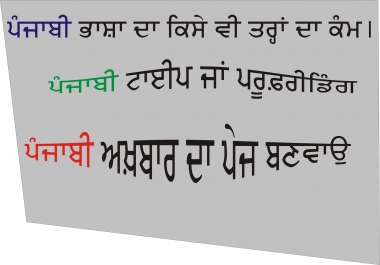 ਪੰਜਾਬੀ ਭਾਸ਼ਾ ਦਾ ਕਿਸੇ ਵੀ ਤਰ੍ਹਾਂ ਦਾ ਕੰਮ।
ਪੰਜਾਬੀ ਟਾਈਪ ਜਾਂ ਪਰੂਫ਼ਰੀਡਿੰਗ
ਪੰਜਾਬੀ ਅਖ਼ਬਾਰ ਦਾ ਪੇਜ ਬਣਵਾਉ